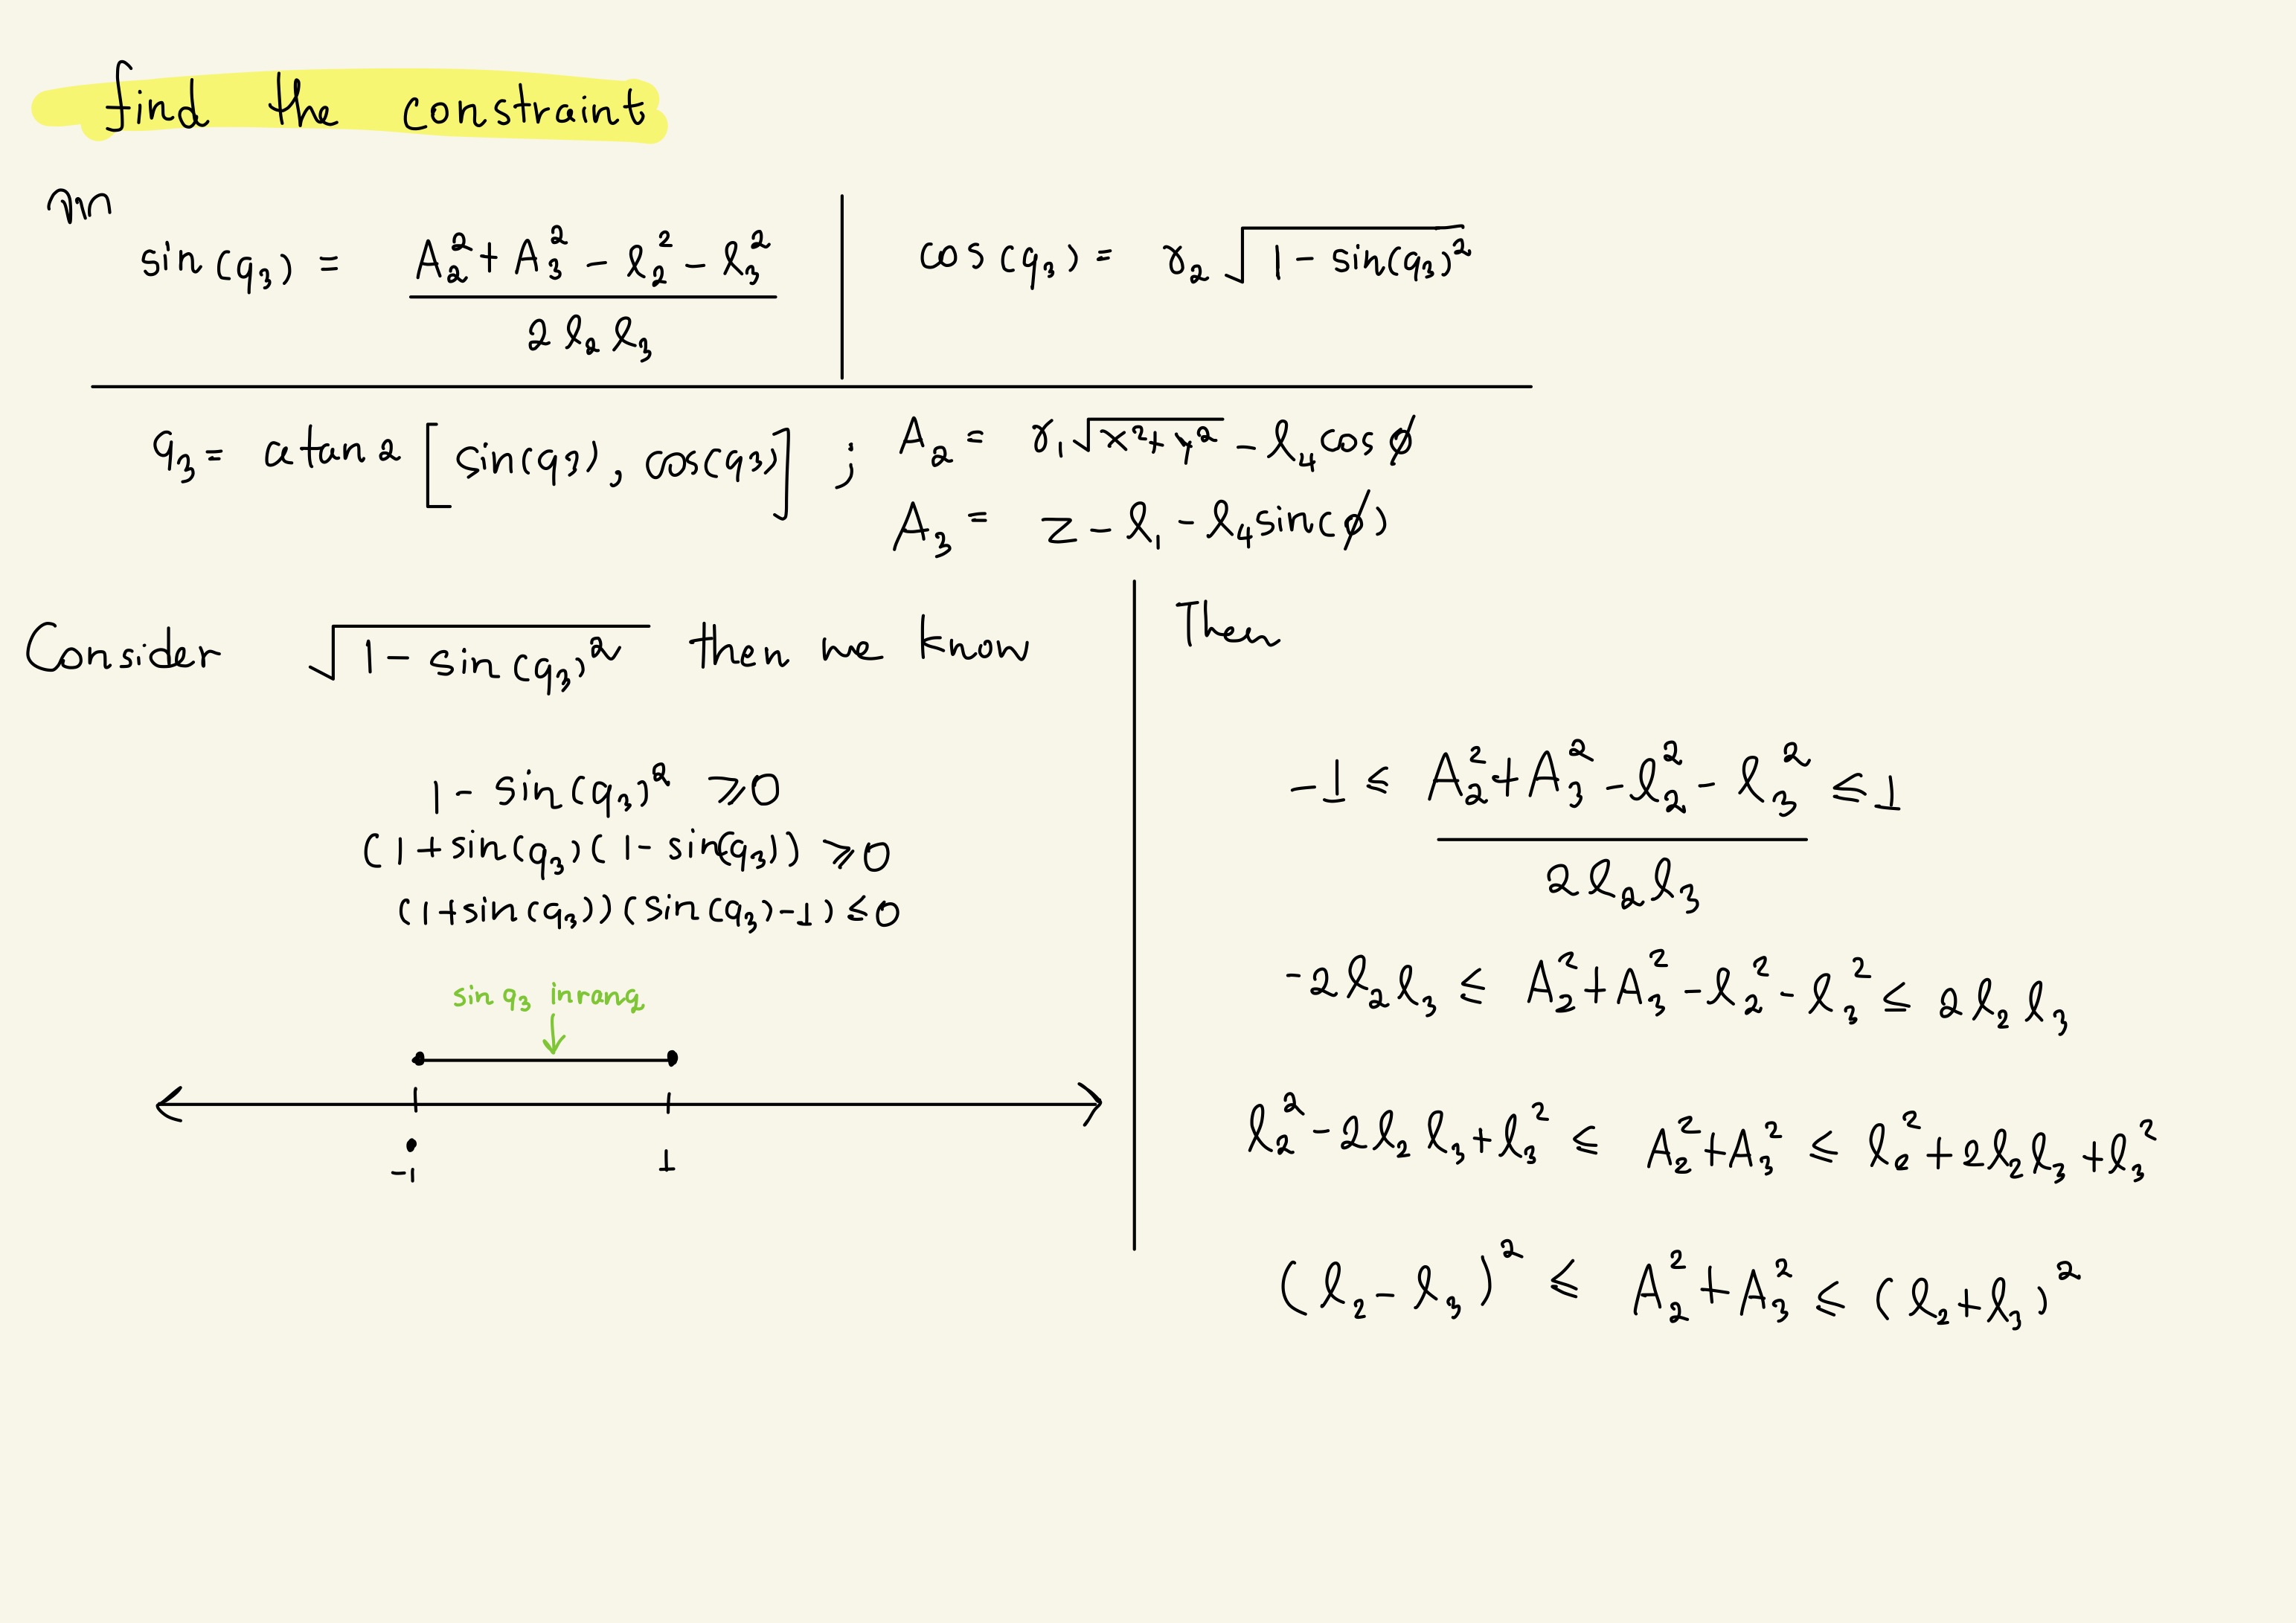 find the constraint
จาก
sin(q₃) = (A₂² + A₃² - l₂² - l₃²) / (2 l₂ l₃)
cos(q₃) = γ₂ √(1 - sin(q₃)²)
q₃ = atan2 [sin(q₃), cos(q₃)] ; A₂ = γ₁√(x²+y²) - l₄cos ϕ
A₃ = z - l₁ - l₄sin(ϕ)
Consider √(1 - sin(q₃)²) then we know
1 - sin(q₃)² ⩾ 0
(1+sin(q₃)(1- sin(q₃)) ⩾ 0
(1+sin(q₃))(sin(q₃)-1) ≤ 0
sin q₃ in rang
-1 1
Then
-1 ≤ (A₂²+A₃² - l₂² - l₃²) / (2l₂l₃) ≤ 1
-2l₂l₃ ≤ A₂²+A₃² - l₂² - l₃² ≤ 2l₂l₃
l₂² - 2l₂l₃ + l₃² ≤ A₂²+A₃² ≤ l₂² + 2l₂l₃ + l₃²
(l₂ - l₃)² ≤ A₂² + A₃² ≤ (l₂+l₃)²